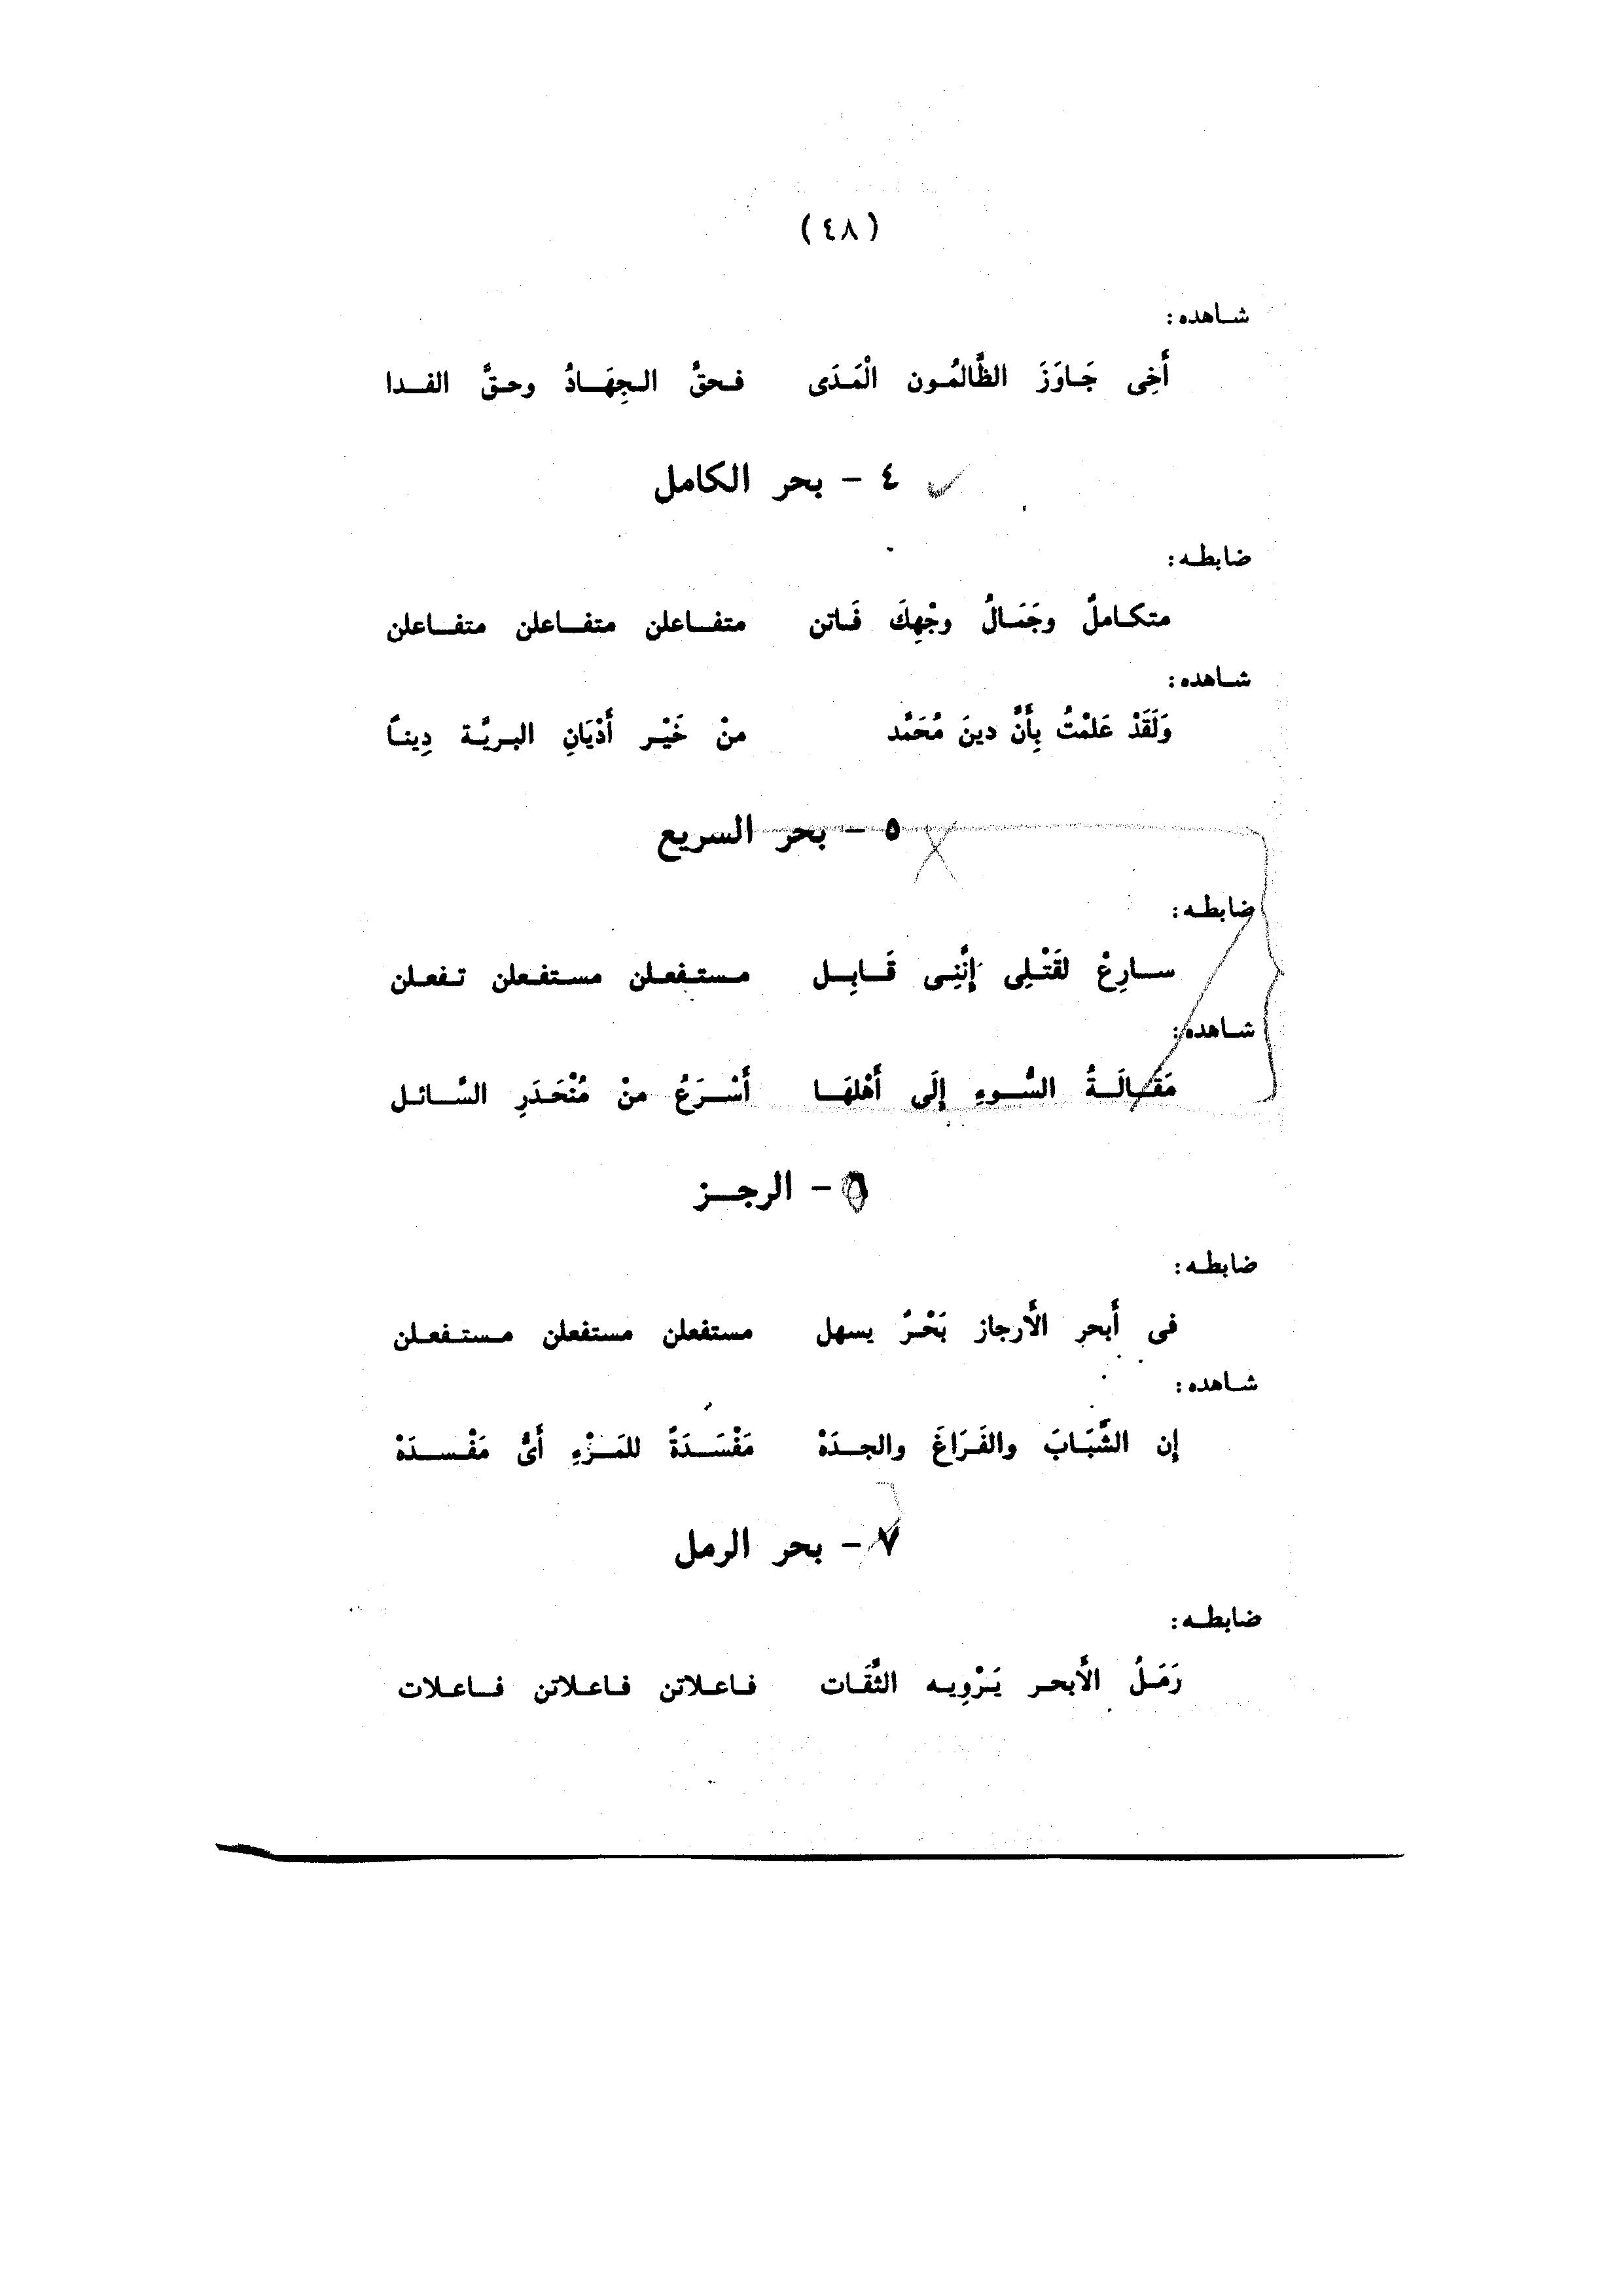 ( ٤٨ )
شاهده :
أَخِى جَاوَزَ الظَّالمُون الْمَدَى فحقُّ الجِهَادُ وحقَّ الفدا
٤ - بحر الكامل
ضابطه :
متكاملٌ وجَمَالُ وجْهِكَ فَاتن متفاعلن متفاعلن متفاعلن
شاهده :
وَلَقَدْ عَلمْتُ بِأَنَّ دينَ مُحَمَّد منْ خَيْر أَدْيَانِ البريَّة دِيناً
٥ - بحر السريع
ضابطه :
سارِعْ لقَتْلِى إِنَّنِى قَابِل مستفعلن مستفعلن تفعلن
شاهده :
مَقَالَةُ السُّوءِ إِلَى أَهْلهَا أَسْرَعُ منْ مُنْحَدَرِ السَّائل
- الرجز
ضابطه :
فى أَبحر الأَرجاز بَحْرٌ يسهل مستفعلن مستفعلن مستفعلن
شاهده :
إِن الشَّبَابَ والفَرَاغَ والجدَهْ مَفْسَدَةً للمَرْءِ أَىُّ مَفْسدَهْ
٧ - بحر الرمل
ضابطه :
رَمَلُ الأَبحر يَرْوِيه الثَّقَات فاعلاتن فاعلاتن فاعلات